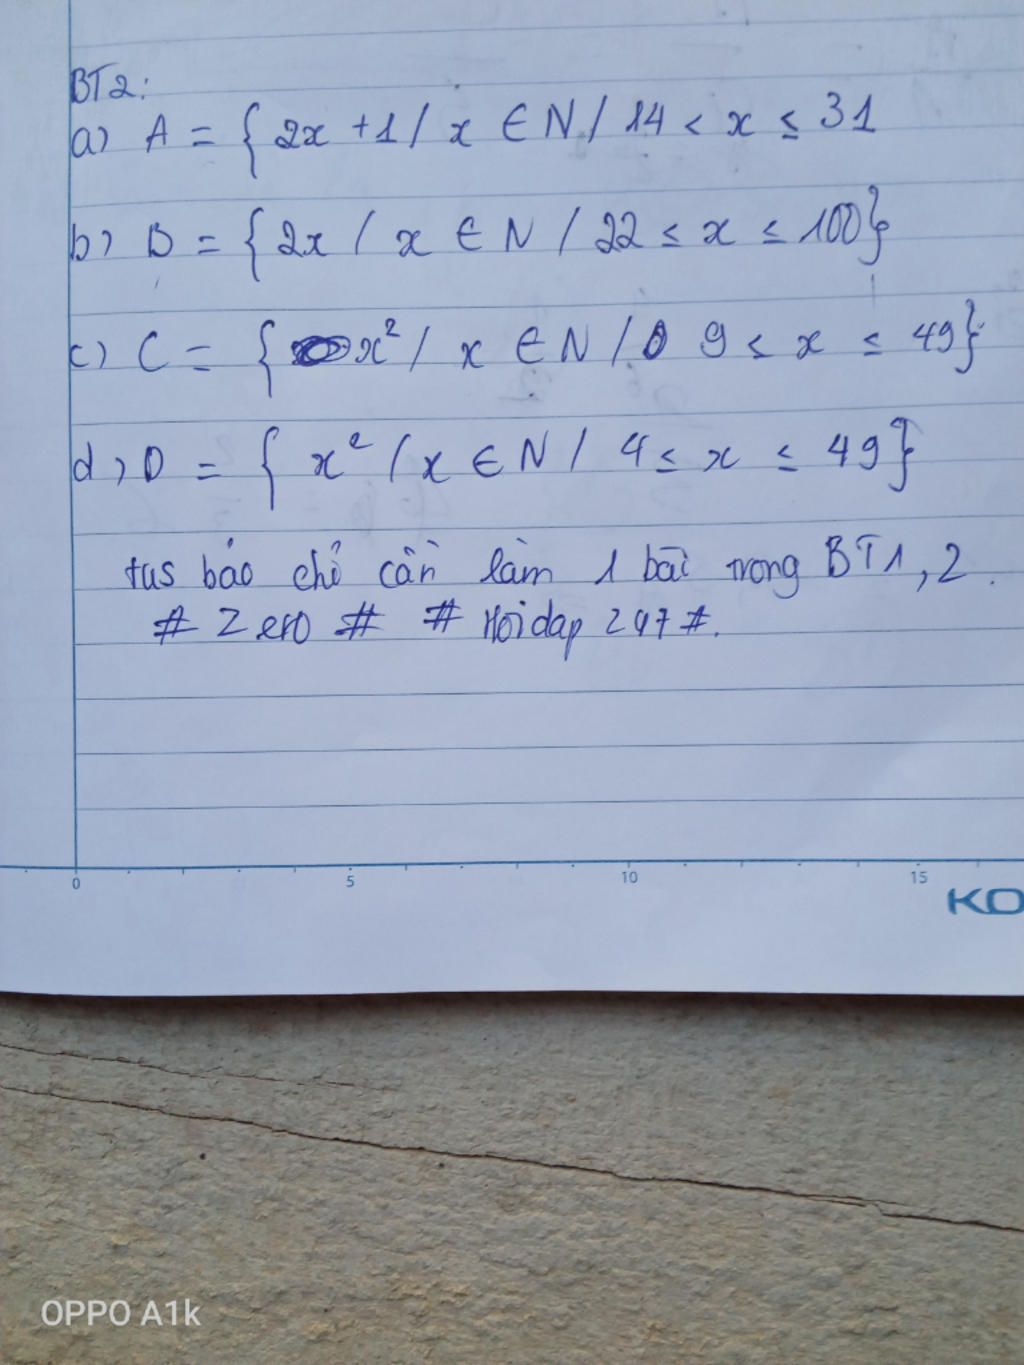 BT2:
a) A = { 2x + 1 / x ∈ N / 14 < x ≤ 31
b) B = { 2x / x ∈ N / 22 ≤ x ≤ 100}
c) C = { x² / x ∈ N / 9 ≤ x ≤ 49};
d) D = { x² / x ∈ N / 4 ≤ x ≤ 49}
tus bảo chỉ cần làm 1 bài trong BT1, 2.
# Zero # # Hoidap 247 #.
0 5 10 15
KO
OPPO A1k